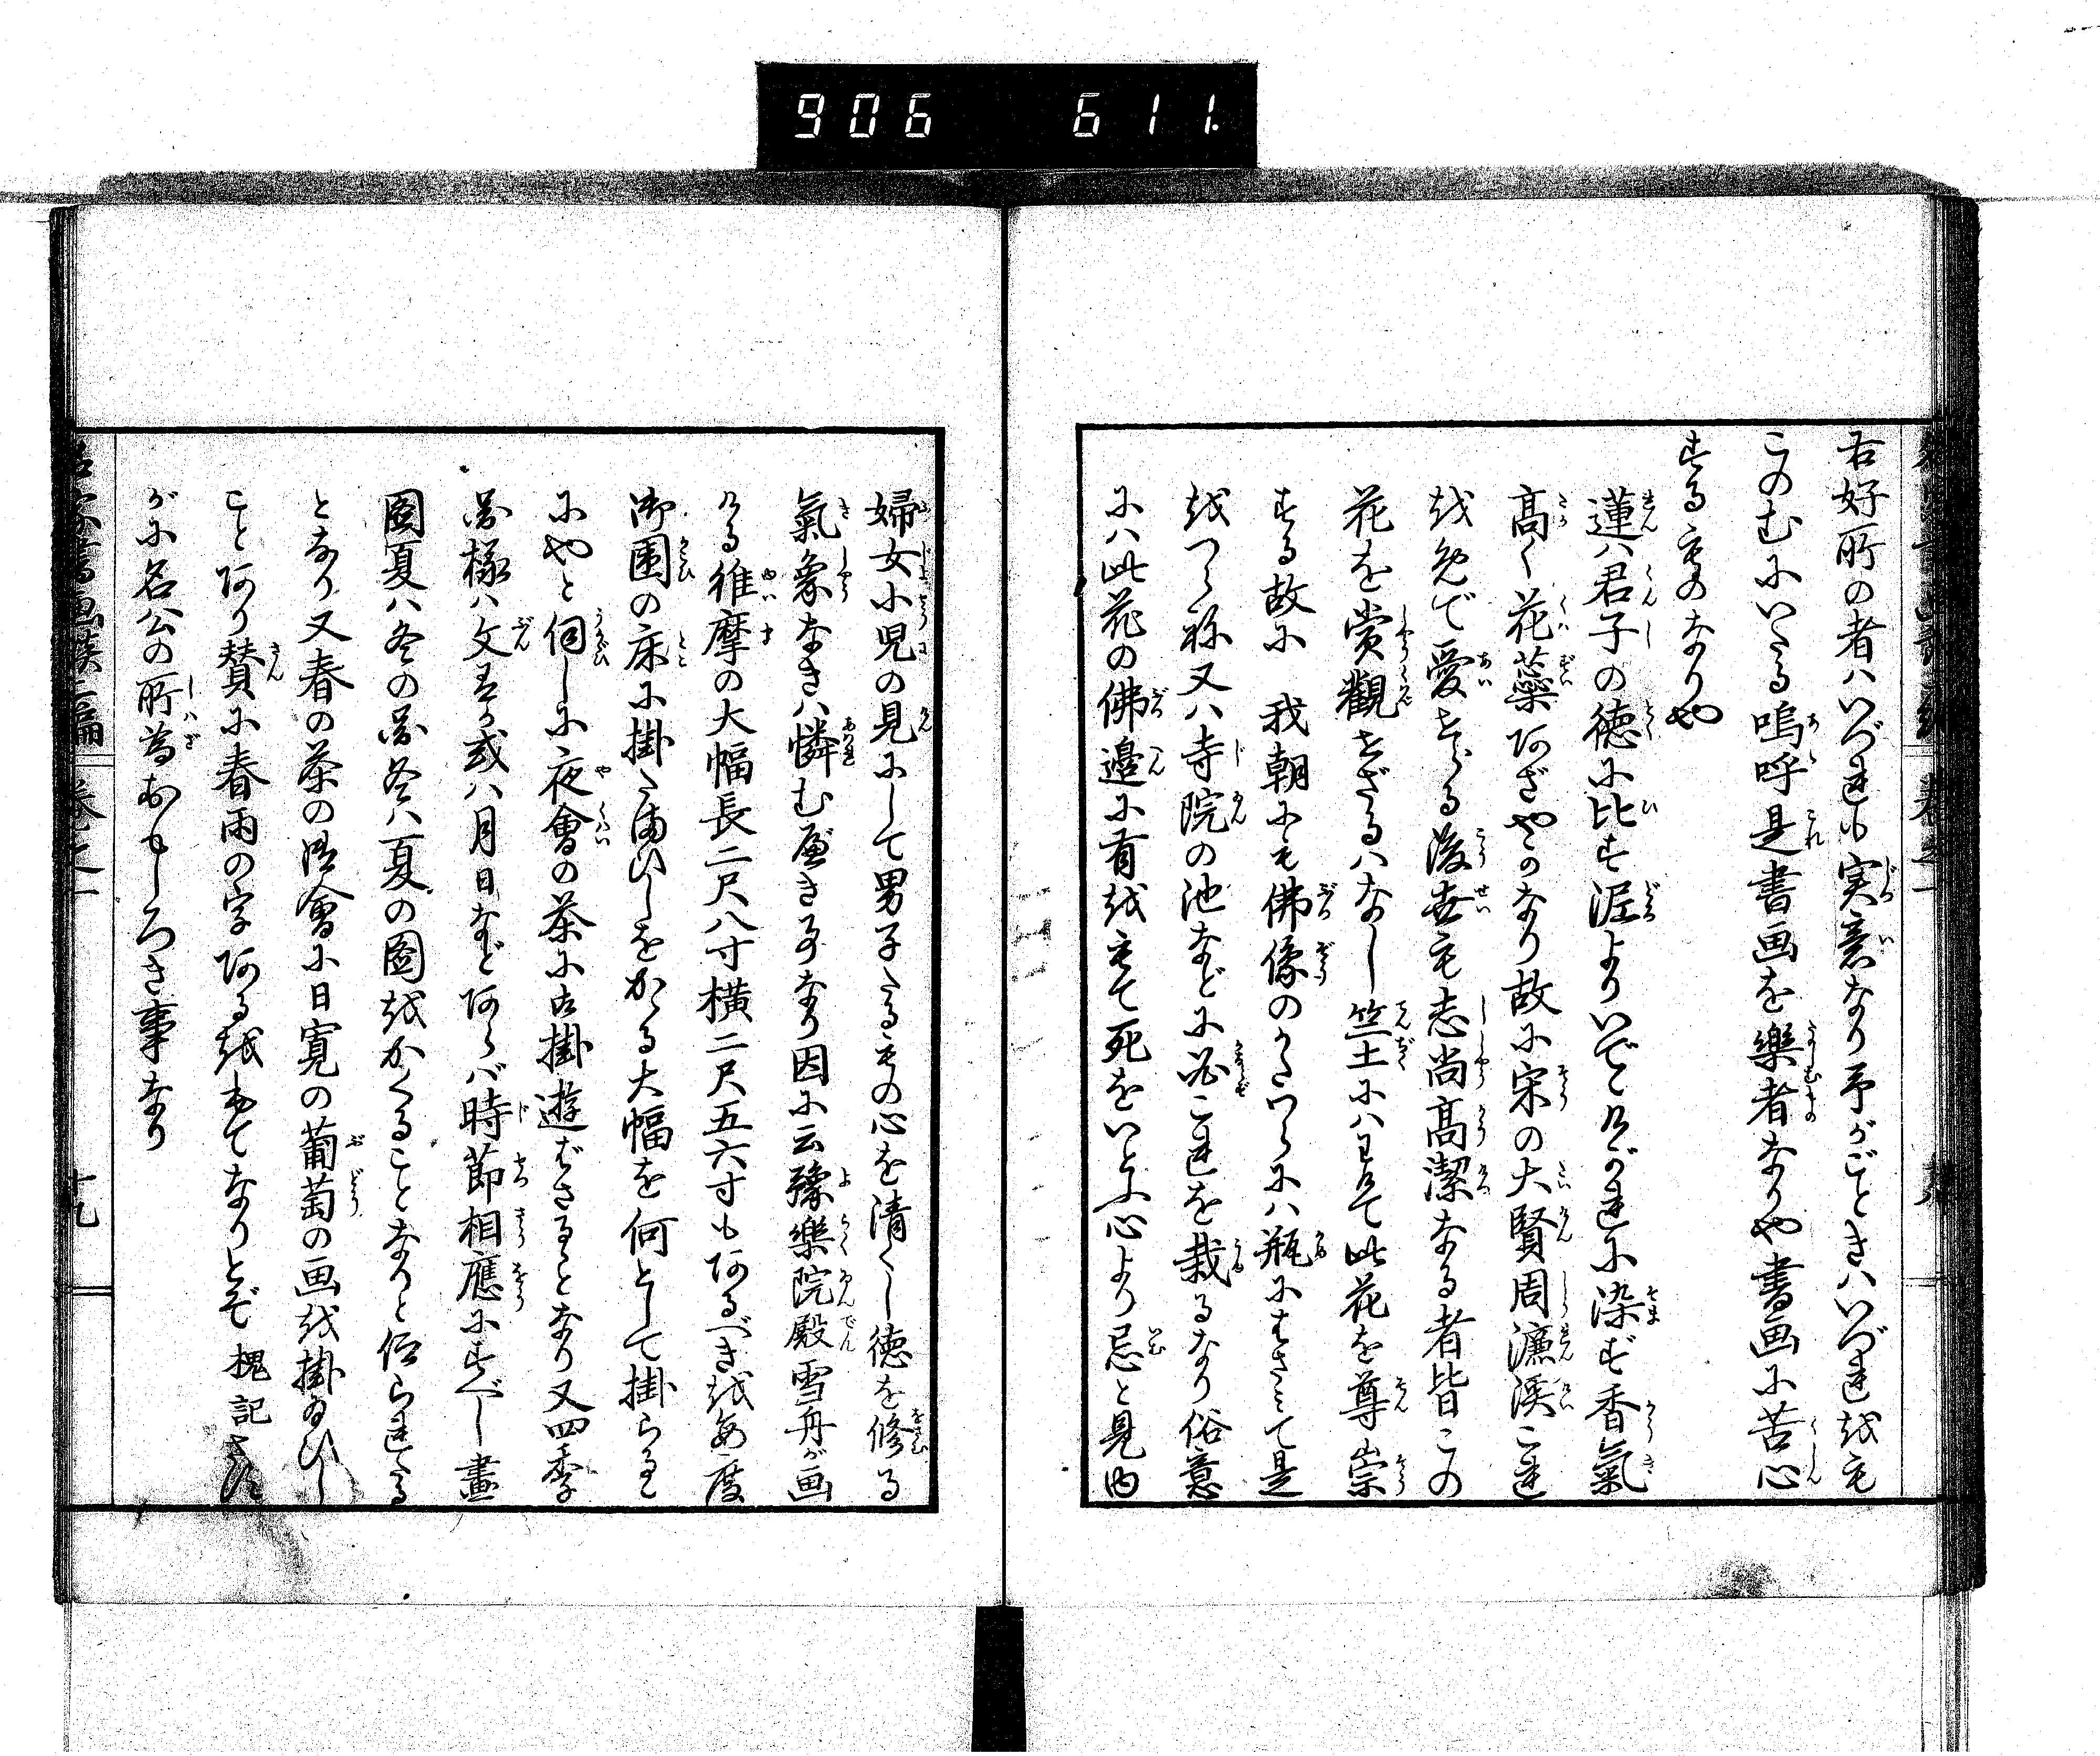 906 611.
右好所の者ハいづれも実意なり予がごときハいづれをも
このむにいたる嗚呼是書画を樂者なりや書画に苦心
するものなりや
蓮ハ君子の徳に比す泥よりいでゝけがれに染ず香氣
高く花蘂あざやかなり故に宋の大賢周濂溪これ
を免で愛せらる後世も志尚高潔なる者皆この
花を賞觀せざるハなし竺土にハわけて此花を尊崇
する故に 我朝にも佛像のかたハらにハ瓶にもさミて是
をつらね又ハ寺院の池などに必これを栽るなり俗意
にハ此花の佛邉に有をもて死をいとふ心より忌と見ゆ
婦女小児の見にして男子たるもの心を清くし徳を修る
氣象なきハ憐むべき事なり因に云豫樂院殿雪舟が画
ける維摩の大幅長二尺八寸横二尺五六寸もあるべきを毎度
御圍の床に掛たまひしをかゝる大幅を何として掛らるゝ
にやと伺しに夜會の茶に古掛遊ばさるゝことなり又四季
の極ハ文言に或ハ月日などあらバ時節相應にすべし畫
圖夏ハ冬の圖冬ハ夏の圖をかくることなりと仰られたる
となり又春の茶の御會に日寛の葡萄の画を掛給ひし
ことあり賛に春雨の字あるをもてなりとぞ 槐記
がに名公の所為おもしろき事なり
名家書画談二編 巻之一 十九